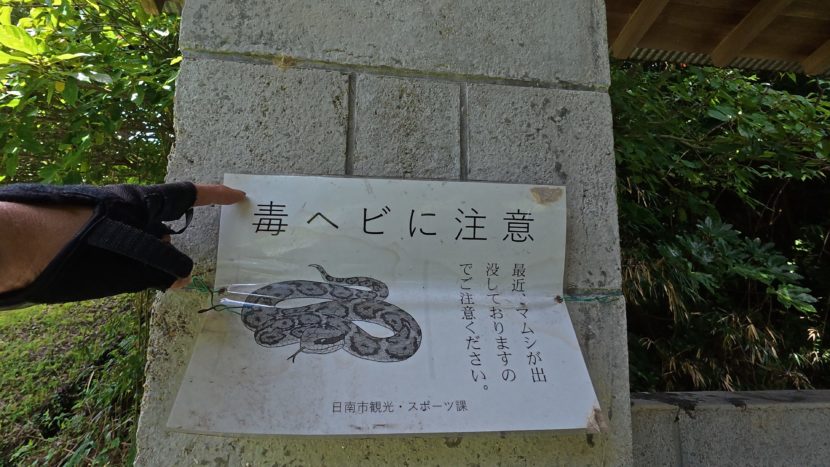 毒ヘビに注意
最近、マムシが出
没しておりますの
でご注意ください。
日南市観光・スポーツ課